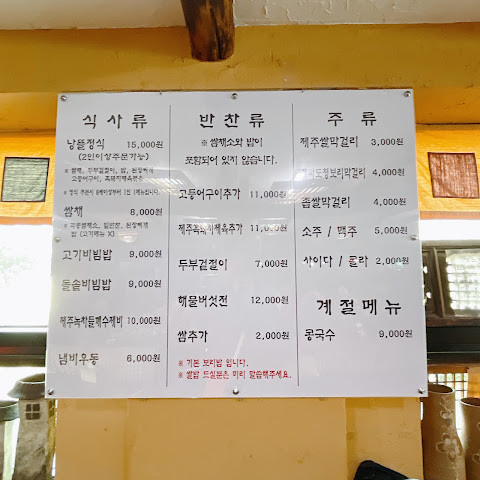 식사류
낭뜰정식 15,000원
(2인이상주문가능)
※ 쌈채, 두부겉절이, 밥, 된장찌개
고등어구이,
※ 정식 주문시
쌈채 8,000원
※
(고기메뉴 X)
고기비빔밥 9,000원
돌솥비빔밥 9,000원
제주녹차들깨수제비 10,000원
냄비우동 6,000원
반찬류
※ 쌈채소와 밥이
포함되어 있지 않습니다.
고등어구이추가 11,000원
제주흑돼지제육추가 11,000원
두부겉절이 7,000원
해물버섯전 12,000원
쌈추가 2,000원
※ 기본 보리밥 입니다.
※ 쌀밥 드실분은 미리 말씀해주세요.
주류
제주쌀막걸리 3,000원
보리막걸리 4,000원
좁쌀막걸리 4,000원
소주 / 맥주 5,000원
사이다 / 콜라 2,000원
계절메뉴
콩국수 9,000원